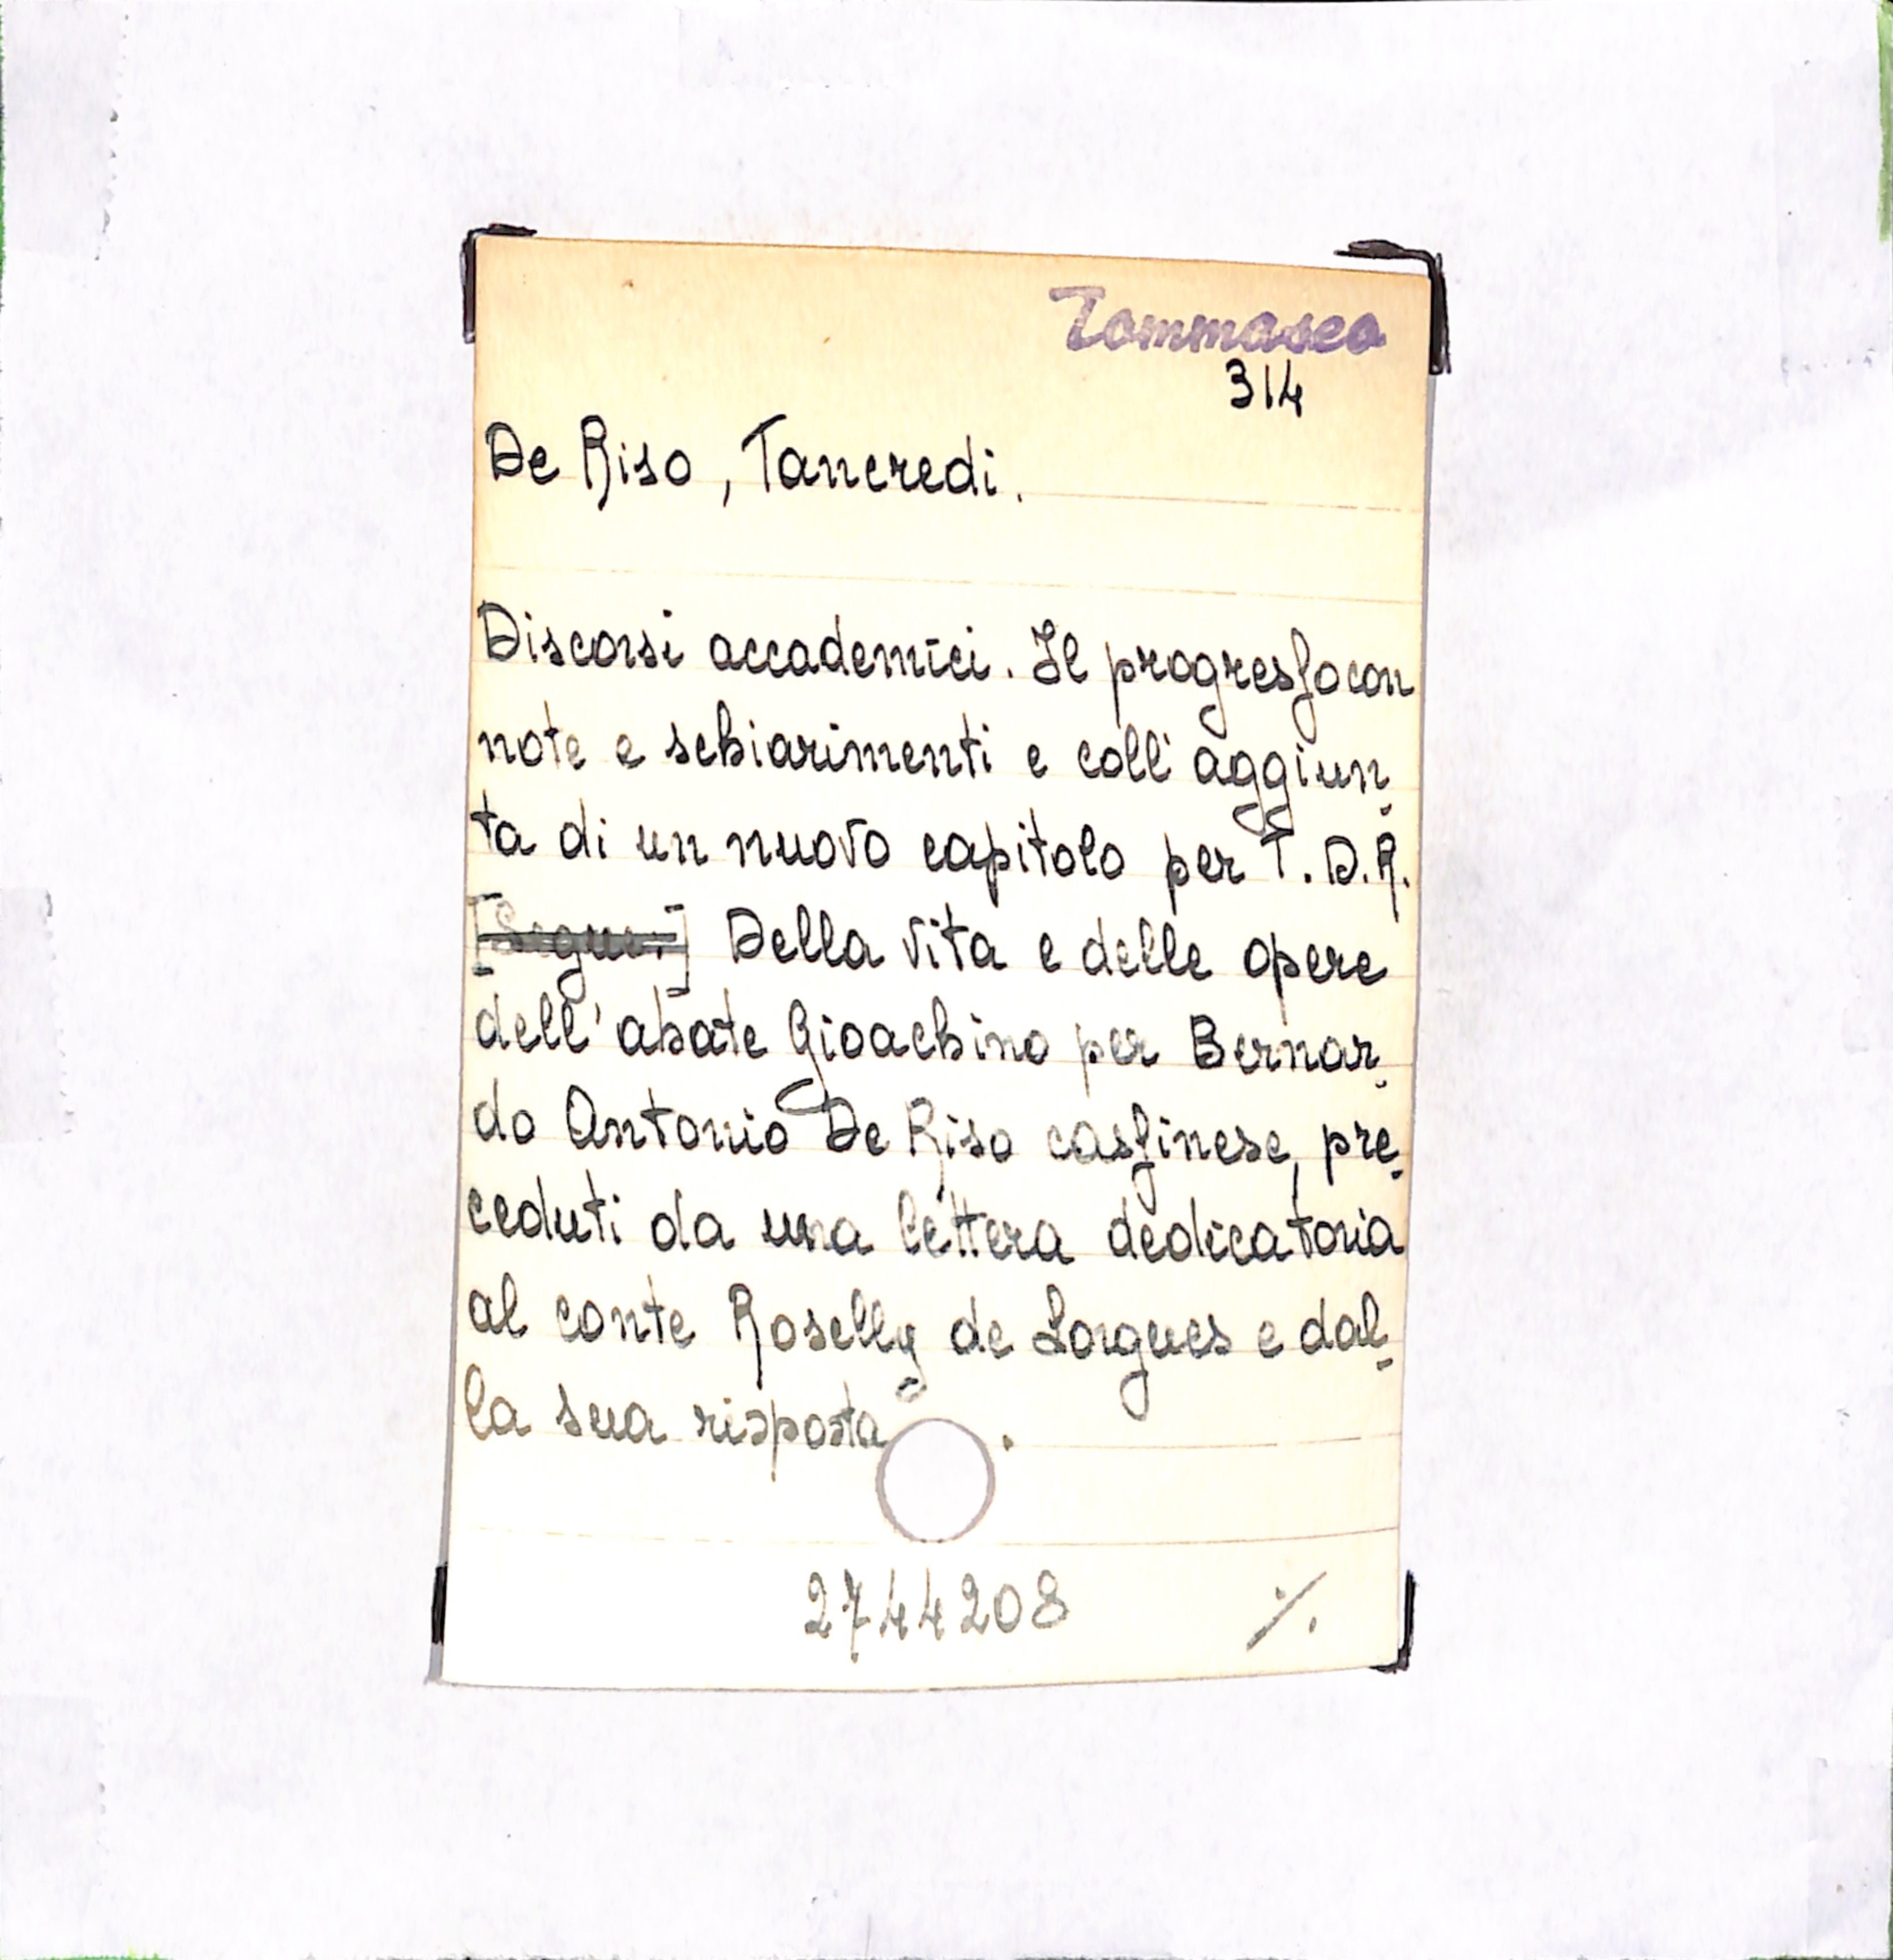 Tommaseo
314
De Riso, Tancredi.
Discorsi accademici. Il progresso con
note e schiarimenti e coll'aggiun-
ta di un nuovo capitolo per T. D. R.
[Segue:] Della vita e delle opere
dell'abate Gioachino per Bernar-
do Antonio De Riso cassinese, pre-
ceduti da una lettera dedicatoria
al conte Roselly de Lorgues e dal-
la sua risposta.
2744208 ./.